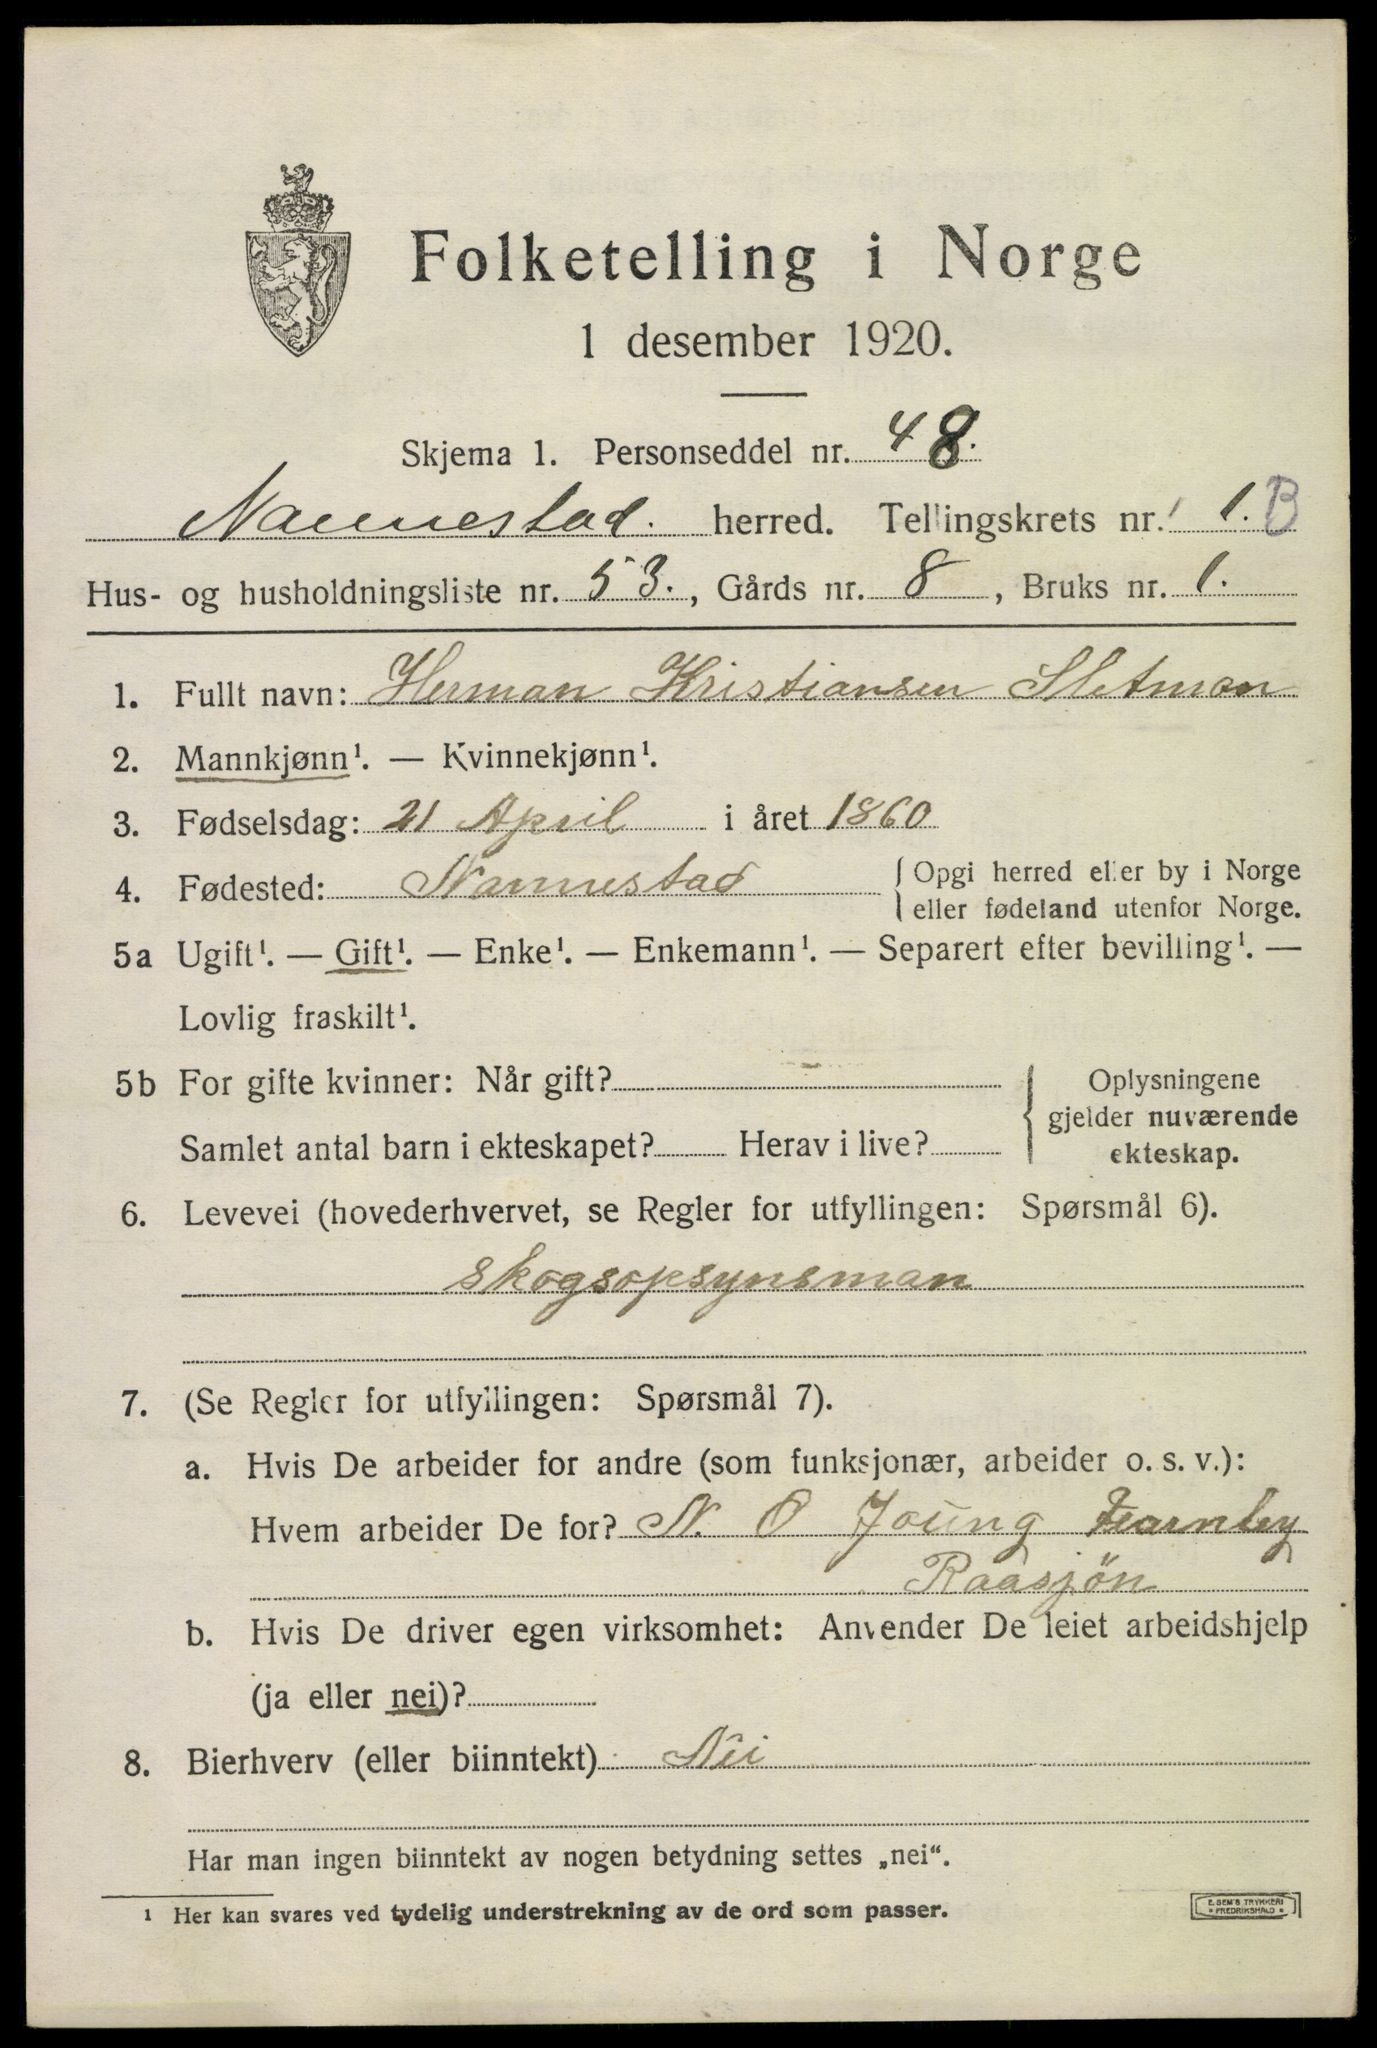 Folketelling i Norge
1 desember 1920.
Skjema 1. Personseddel nr. 48.
Nannestad. herred. Tellingskrets nr. 1. B
Hus- og husholdningsliste nr. 53., Gårds nr. 8, Bruks nr. 1.
1. Fullt navn: Herman Kristiansen Sletman
2. Mannkjønn¹. — Kvinnekjønn¹.
3. Fødselsdag: 21 April i året 1860
4. Fødested: Nannestad { Opgi herred eller by i Norge
eller fødeland utenfor Norge.
5a Ugift¹. — Gift¹. — Enke¹. — Enkemann¹. — Separert efter bevilling¹. —
Lovlig fraskilt¹.
5b For gifte kvinner: Når gift? { Oplysningene
gjelder nuværende
Samlet antal barn i ekteskapet? Herav i live? ekteskap.
6. Levevei (hovederhvervet, se Regler for utfyllingen: Spørsmål 6).
skogsopsynsman
7. (Se Regler for utfyllingen: Spørsmål 7).
a. Hvis De arbeider for andre (som funksjonær, arbeider o. s. v.):
Hvem arbeider De for? N. O Joung Fearnley
Raasjön
b. Hvis De driver egen virksomhet: Anvender De leiet arbeidshjelp
(ja eller nei)?
8. Bierhverv (eller biinntekt) Nei
Har man ingen biinntekt av nogen betydning settes „nei“.
¹ Her kan svares ved tydelig understrekning av de ord som passer.
E. SEM'S TRYKKERI
FREDRIKSHALD